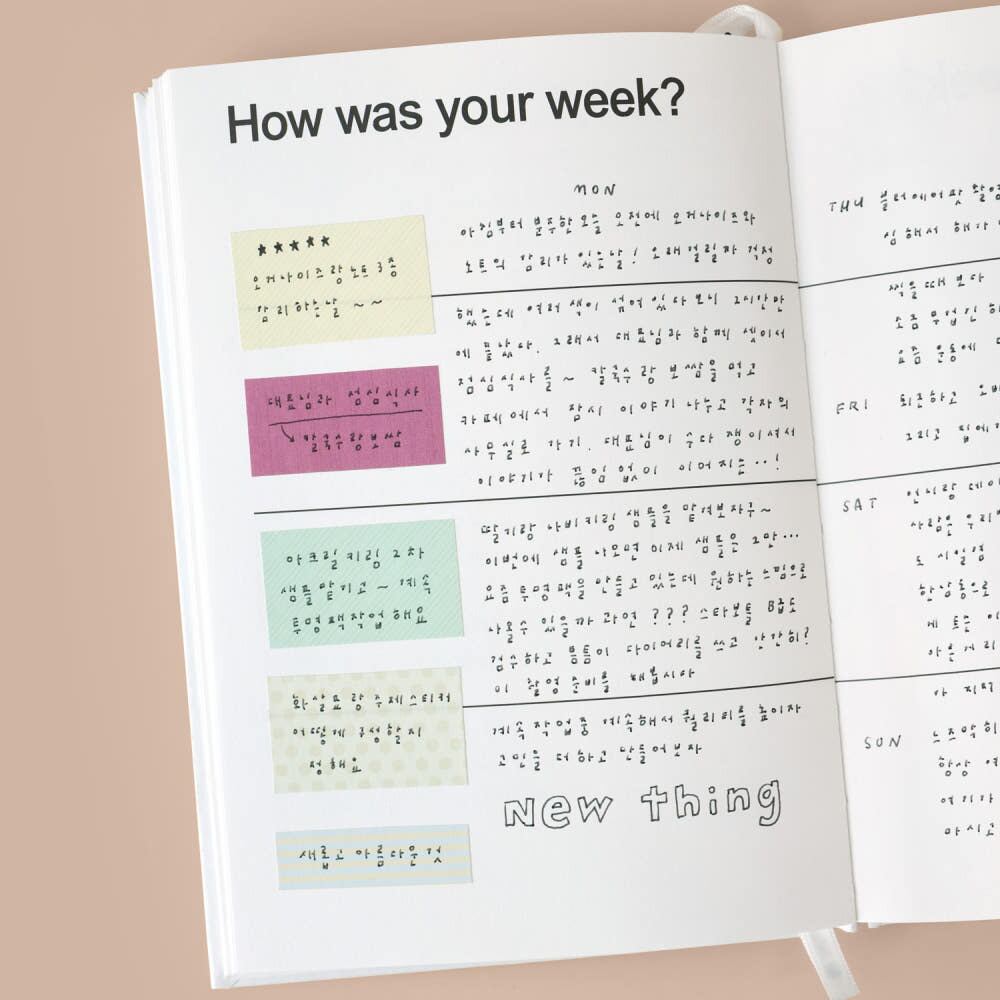 How was your week?
★★★★★
오거나이즈랑 노트 3종
감리하는날 ~~
대표님과 점심식사
칼국수랑보쌈
아크릴 키링 2차
샘플맡기고~ 계속
투명팩작업해요
화살표랑 주제스티커
어떻게 구성할지
정해요
새롭고 아름다운것
MON
아침부터 분주한 오늘 오전에 오거나이즈와
노트의 감리가 있는날! 오래걸릴자 걱정
했는데 여러 색이 섞여있다보니 2시간만
에 끝났다. 그래서 대표님과 함께 셋이서
점심식사를~ 칼국수랑 보쌈을 먹고
카페에서 잠시 이야기 나누고 각자의
사무실로 가기. 대표님이 수다쟁이셔서
이야기가 끊임없이 이어지는··!
딸기랑 나비키링 샘플을 맡겨보자구~
이번에 샘플 나오면 이제 샘플은 그만···
요즘 투명팩을 만들고 있는데 원하는 느낌으로
나올수 있을까 과연 ??? 스타보틀 B급도
검수하고 틈틈이 다이어리를 쓰고 간간히?
이 촬영준비를 해봅시다
계속 작업중 계속해서 퀄리티를 높이자
고민을 더하고 만들어보자
New thing
THU
심해서 해가
찍을때 보다
조금 무섭긴 하
요즘 운동에
FRI 퇴근하고
그리고 집에
SAT 언니랑 데이
사람은 우리
도 시일
한남동으로
SUN 느즈막히
항상
여기가
마시고